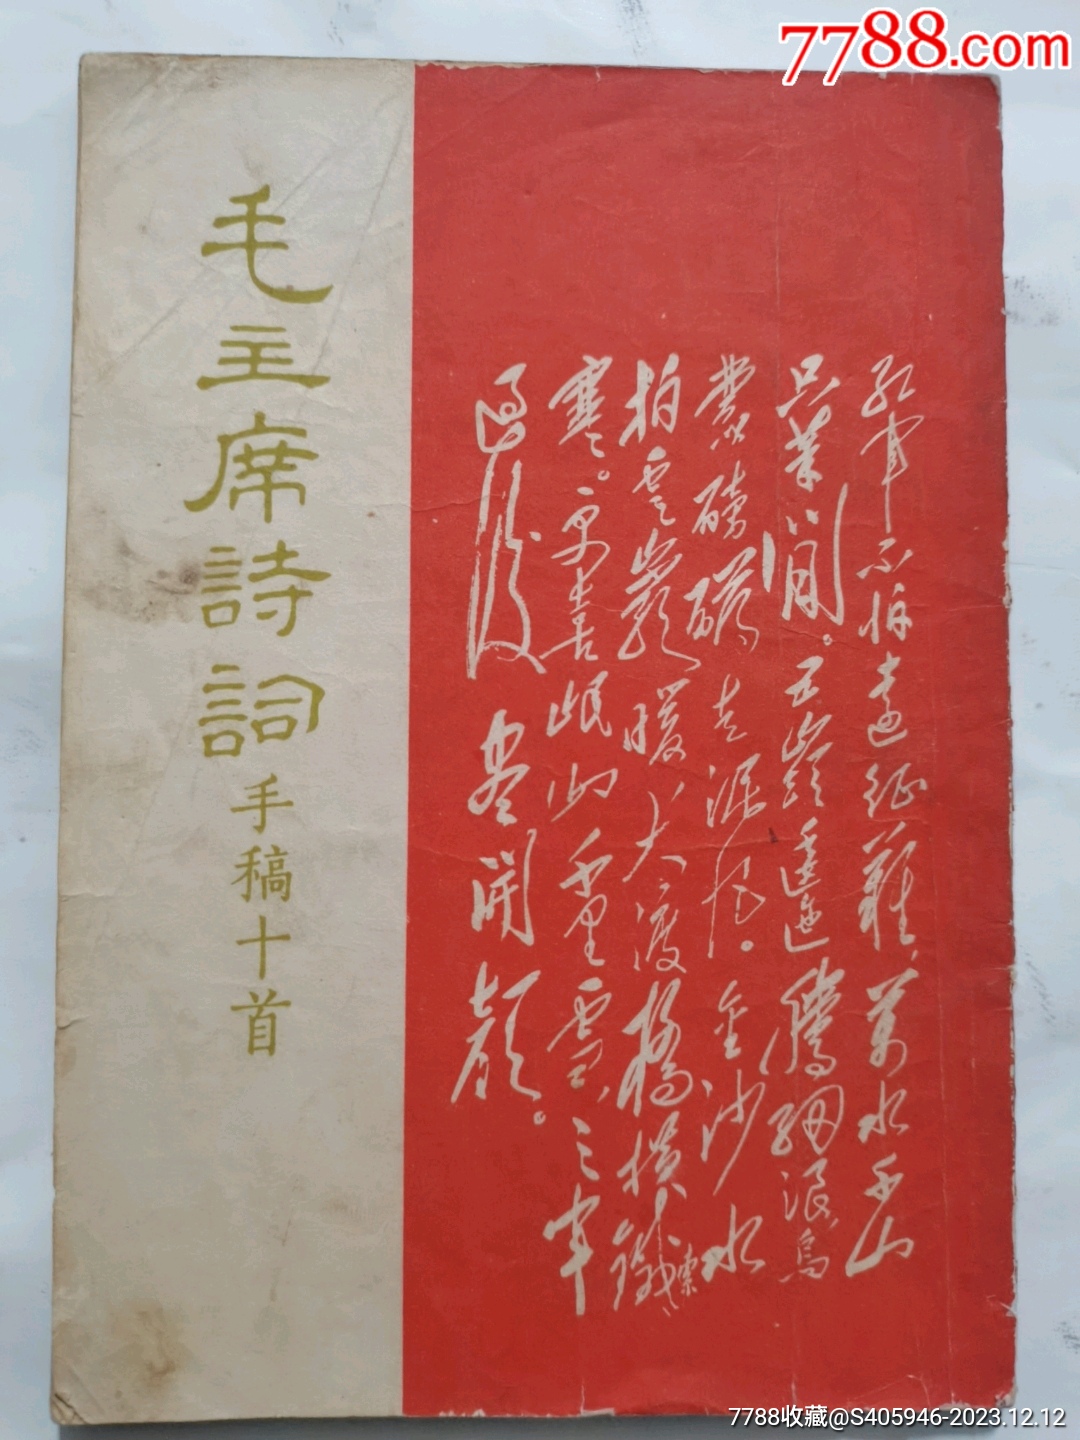 7788.com
毛主席詩詞手稿十首
红軍不怕遠征難，萬水千山
只等閒。五嶺逶迤騰細浪，烏
蒙磅礴走泥丸。金沙水
拍雲崖暖，大渡橋橫鐵索
寒。更喜岷山千里雪，三軍
過後盡開顏。
7788收藏@S405946-2023.12.12